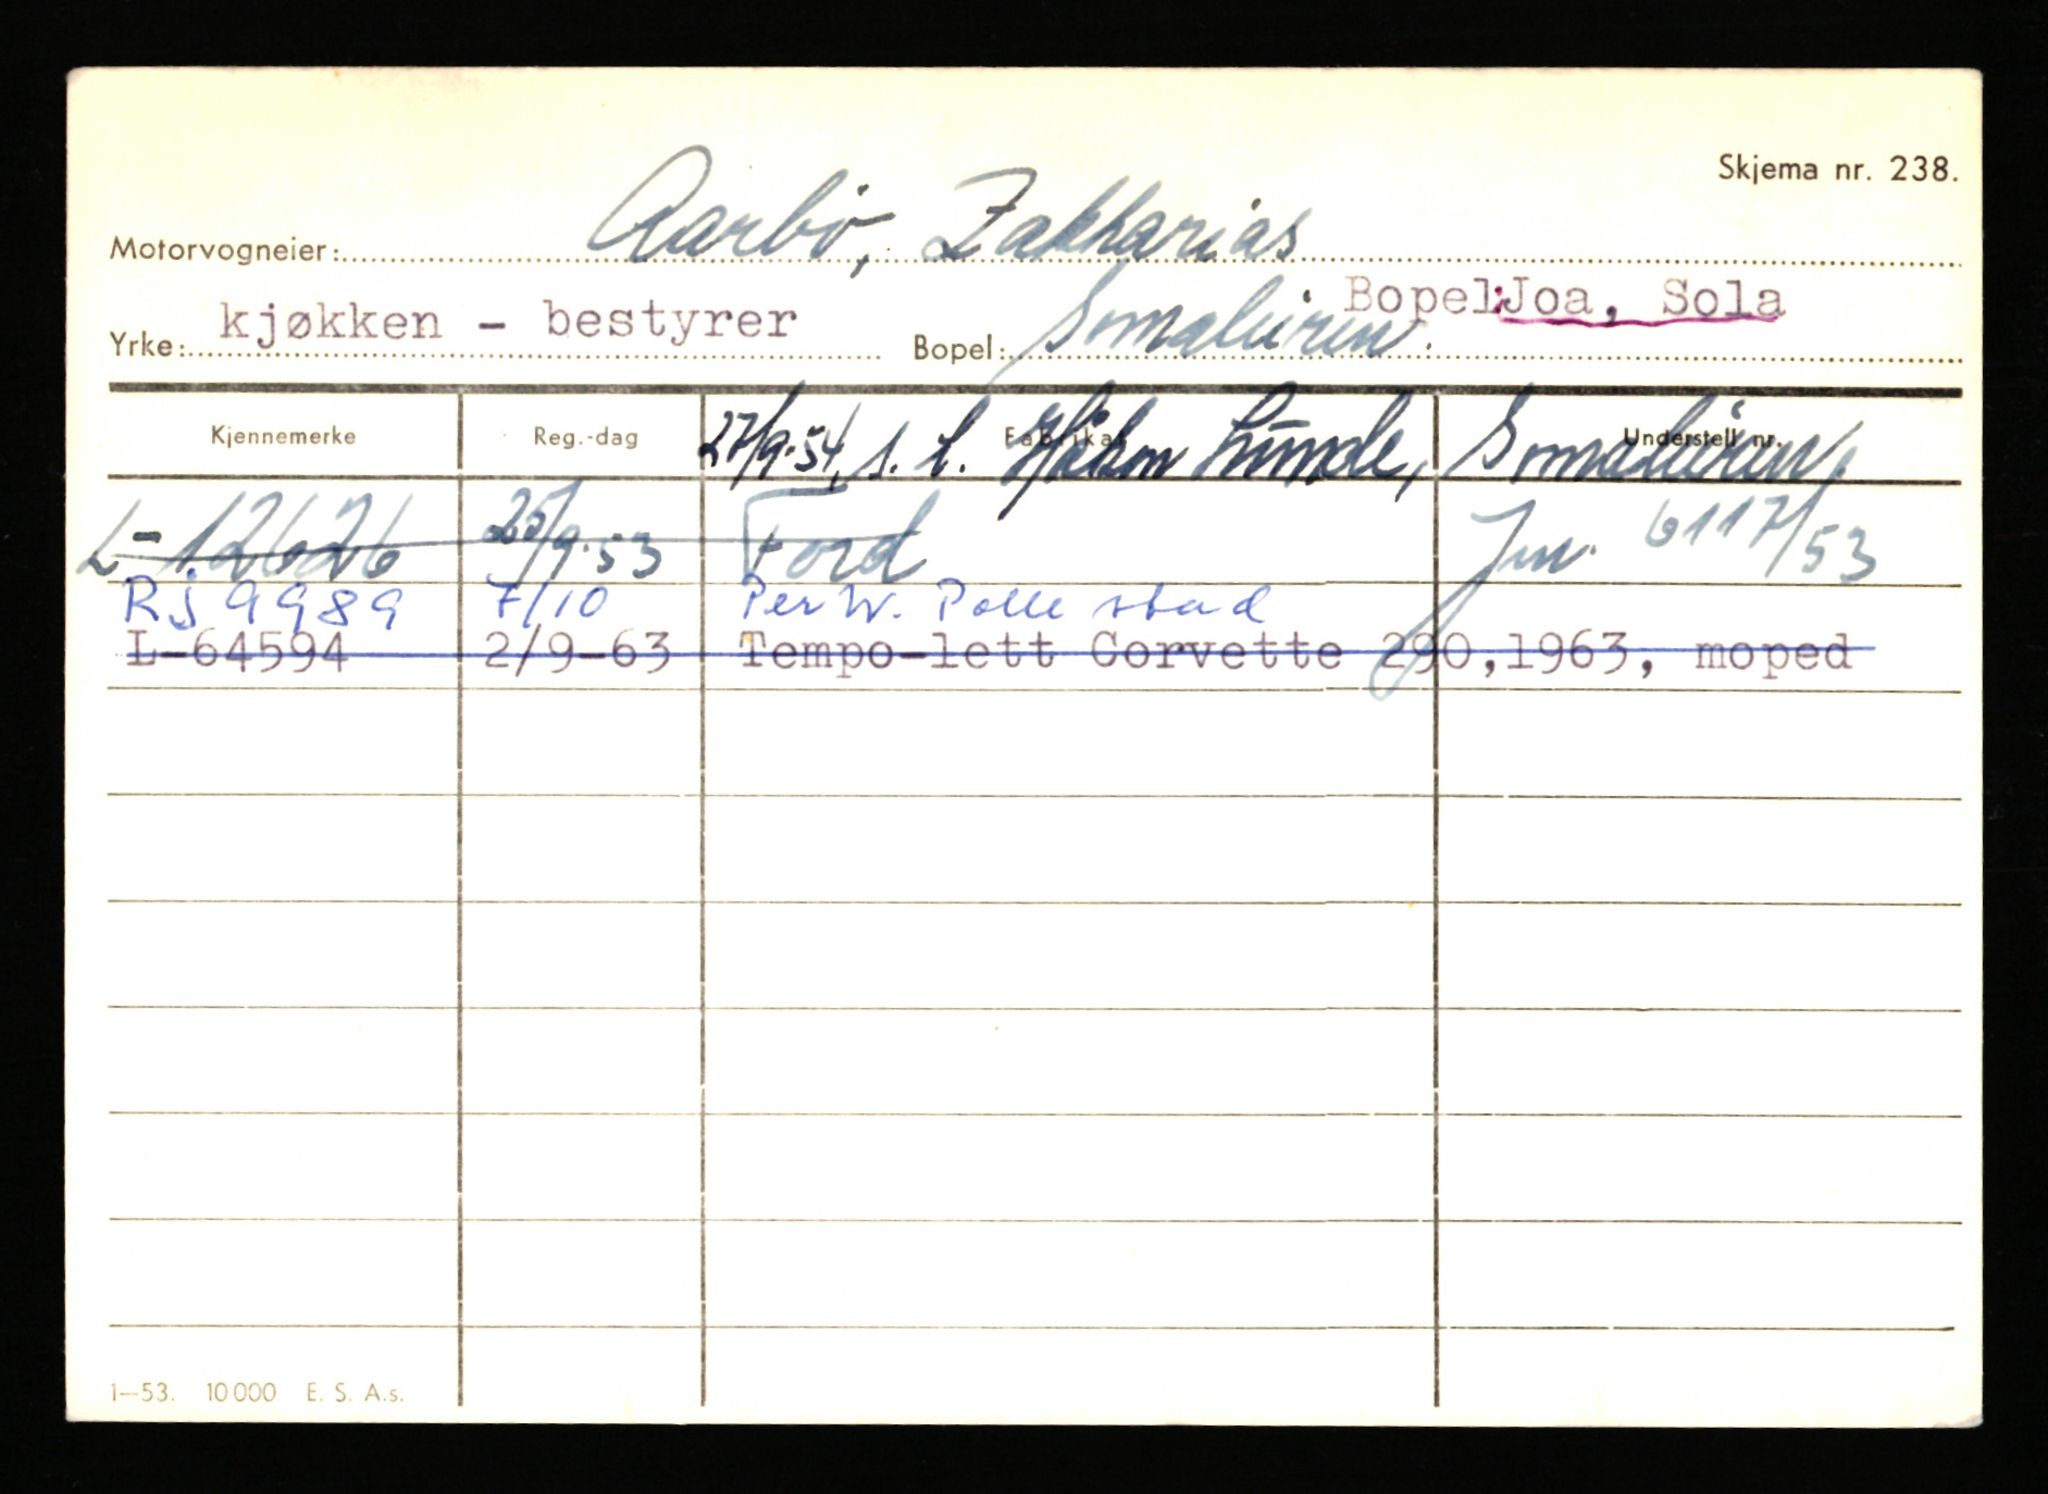 Skjema nr. 238.
Motorvogneier: Aarbö, Zakharias
Bopel: Joa, Sola
Yrke: kjøkken - bestyrer Bopel: Somaliiren.
Kjennemerke Reg.-dag Fabrikat Understell nr.
27/9-54, s. t. Håkon Lunde, Somaliiren,
L-12626 25/9-53 Ford Jnr. 6117/53
Rj 9989 7/10 Per W. Pollestad
L-64594 2/9-63 Tempo-lett Corvette 290,1963, moped
1—53. 10000 E. S. A.s.